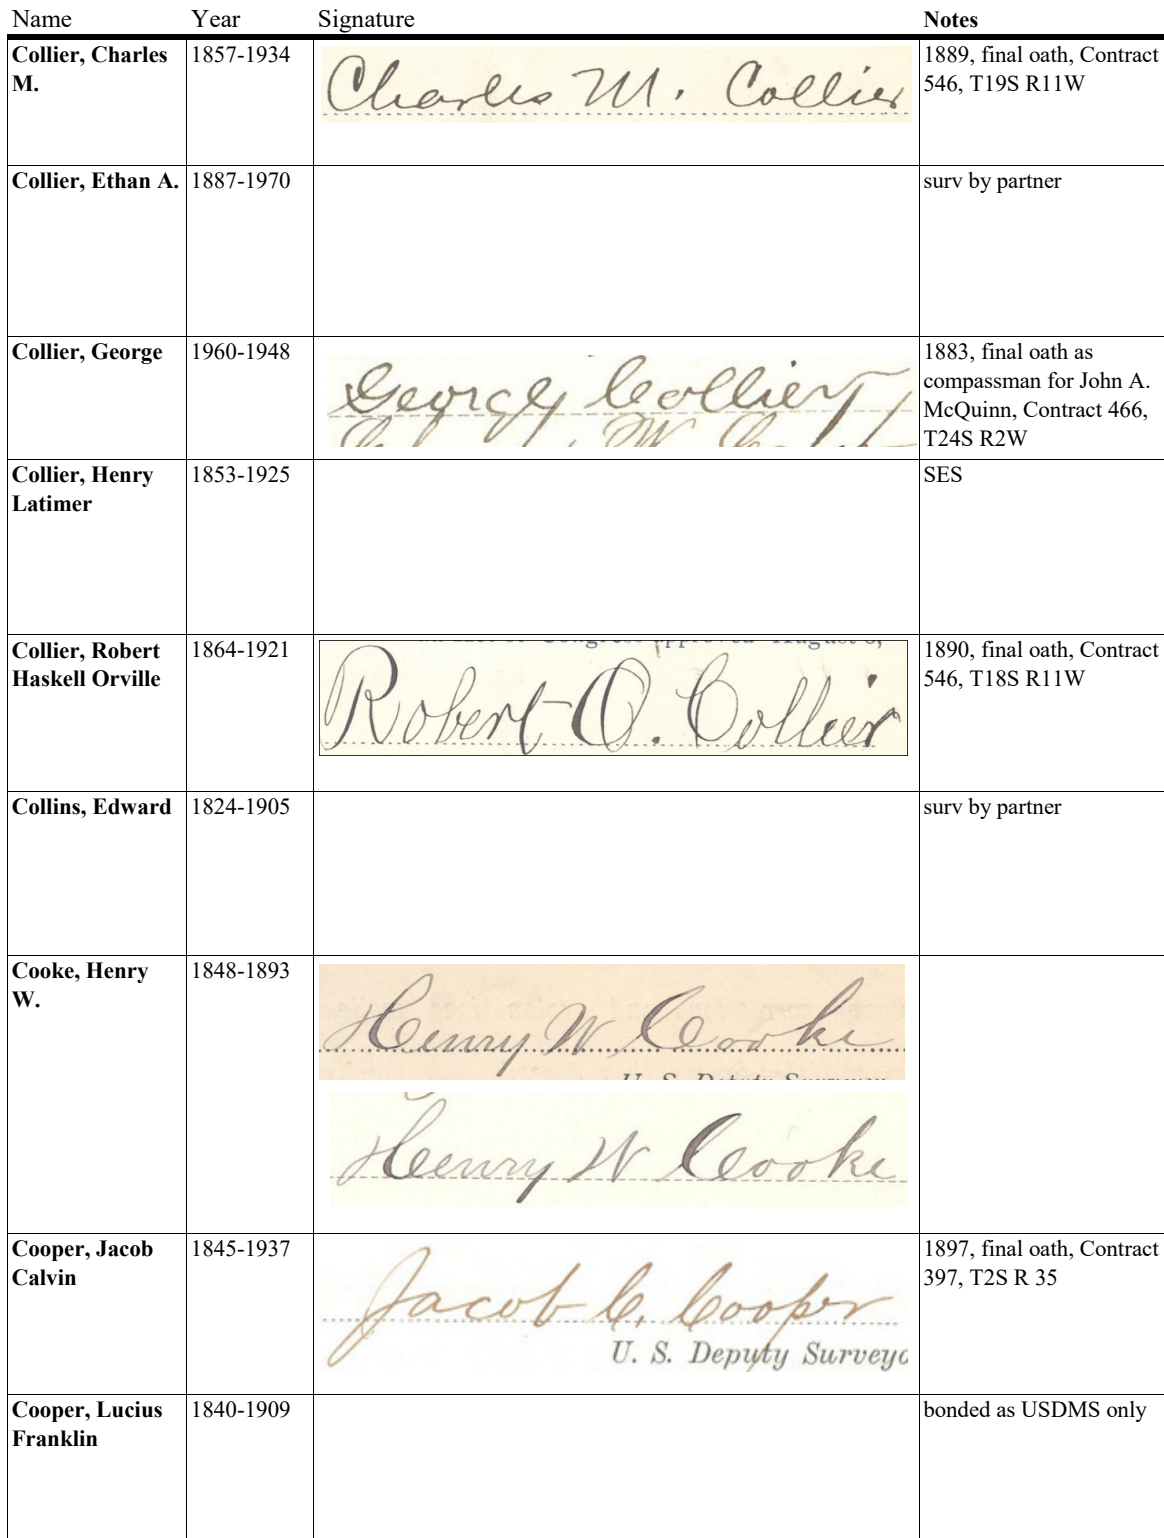 Name Year Signature Notes
Collier, Charles M. 1857-1934 Charles M. Collier 1889, final oath, Contract 546, T19S R11W
Collier, Ethan A. 1887-1970 surv by partner
Collier, George 1960-1948 George Collier 1883, final oath as compassman for John A. McQuinn, Contract 466, T24S R2W
Collier, Henry Latimer 1853-1925 SES
Collier, Robert Haskell Orville 1864-1921 Robert O. Collier 1890, final oath, Contract 546, T18S R11W
Collins, Edward 1824-1905 surv by partner
Cooke, Henry W. 1848-1893 Henry W Cooke
U. S. Deputy Surveyor
Henry W Cooke
Cooper, Jacob Calvin 1845-1937 Jacob C. Cooper 1897, final oath, Contract 397, T2S R 35
U. S. Deputy Surveyo
Cooper, Lucius Franklin 1840-1909 bonded as USDMS only